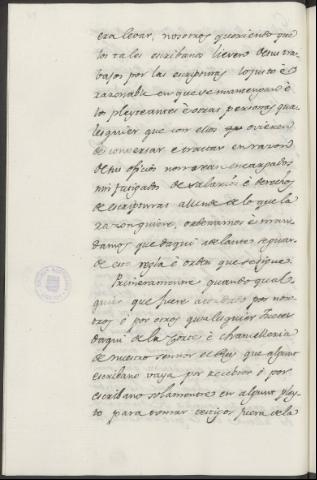 era levar, nosotros queriendo que
los tales escribanos lieven de sus tra-
bajos por las escripturas lo justo é
razonable en que se mantengan é
los pleyteantes é otras personas qua-
lesquier que con ellos ovieren
de conversar é tractar en razon
de sus oficios non sean encargados
nin fatigados de salarios é derechos
de escripturas allende de lo que la
razon quiere, ordenamos é man-
damos que daqui adelante se guar-
de esta regla é orden que se sigue.
Primeramente quando qual
quier que fuere acordado por nos-
otros ó por otros qualesquier Jueces
daqui de la Corte é chancelleria
de nuestro señor el Rey que algunt
escribano vaya por receptor ó por
escribano solamente en algunt pley-
to para tomar testigos fuera de la